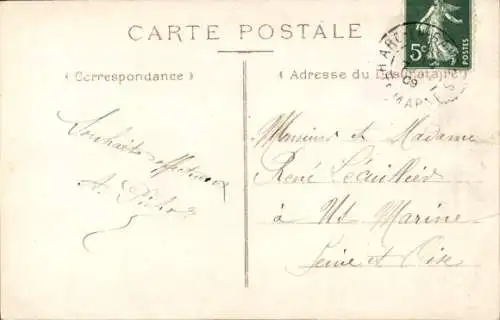 CARTE POSTALE
( Correspondance )
( Adresse du Destinataire )
5c
09
Souhaits affectueux
A.
Monsieur et Madame
René
à Ut Marine
Seine et Oise